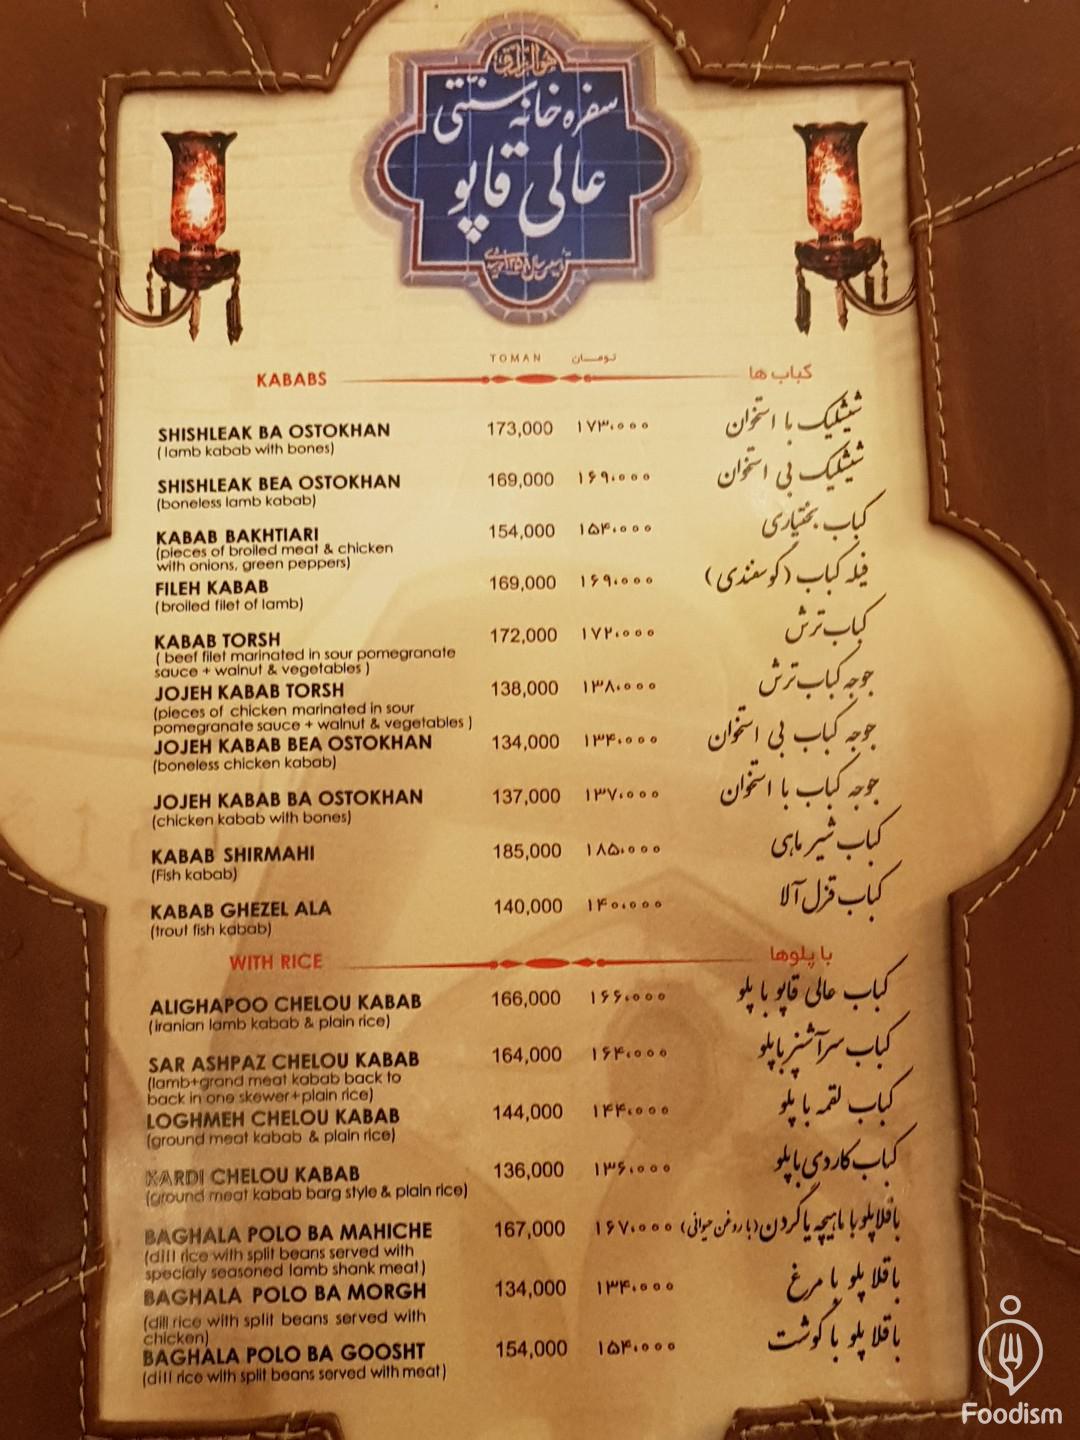 هوالرزاق
سفره خانه سنتی
عالی قاپو
تاسیس سال ۱۳۵۸ خورشیدی
TOMAN تومان
KABABS کباب ها
SHISHLEAK BA OSTOKHAN 173,000 ۱۷۳،۰۰۰ شیشلیک با استخوان
( lamb kabab with bones)
SHISHLEAK BEA OSTOKHAN 169,000 ۱۶۹،۰۰۰ شیشلیک بی استخوان
(boneless lamb kabab)
KABAB BAKHTIARI 154,000 ۱۵۴،۰۰۰ کباب بختیاری
(pieces of broiled meat & chicken
with onions, green peppers)
FILEH KABAB 169,000 ۱۶۹،۰۰۰ فیله کباب (گوسفندی)
(broiled filet of lamb)
KABAB TORSH 172,000 ۱۷۲،۰۰۰ کباب ترش
( beef filet marinated in sour pomegranate
sauce + walnut & vegetables )
JOJEH KABAB TORSH 138,000 ۱۳۸،۰۰۰ جوجه کباب ترش
(pieces of chicken marinated in sour
pomegranate sauce + walnut & vegetables )
JOJEH KABAB BEA OSTOKHAN 134,000 ۱۳۴،۰۰۰ جوجه کباب بی استخوان
(boneless chicken kabab)
JOJEH KABAB BA OSTOKHAN 137,000 ۱۳۷،۰۰۰ جوجه کباب با استخوان
(chicken kabab with bones)
KABAB SHIRMAHI 185,000 ۱۸۵،۰۰۰ کباب شیر ماهی
(Fish kabab)
KABAB GHEZEL ALA 140,000 ۱۴۰،۰۰۰ کباب قزل آلا
(trout fish kabab)
WITH RICE با پلوها
ALIGHAPOO CHELOU KABAB 166,000 ۱۶۶،۰۰۰ کباب عالی قاپو با پلو
(iranian lamb kabab & plain rice)
SAR ASHPAZ CHELOU KABAB 164,000 ۱۶۴،۰۰۰ کباب سرآشپز با پلو
(lamb+grand meat kabab back to
back in one skewer+plain rice)
LOGHMEH CHELOU KABAB 144,000 ۱۴۴،۰۰۰ کباب لقمه با پلو
(ground meat kabab & plain rice)
KARDI CHELOU KABAB 136,000 ۱۳۶،۰۰۰ کباب کاردی با پلو
(ground meat kabab barg style & plain rice)
BAGHALA POLO BA MAHICHE 167,000 ۱۶۷،۰۰۰ باقلا پلو با ماهیچه یا گردن (با روغن حیوانی)
(dill rice with split beans served with
specialy seasoned lamb shank meat)
BAGHALA POLO BA MORGH 134,000 ۱۳۴،۰۰۰ باقلا پلو با مرغ
(dill rice with split beans served with
chicken)
BAGHALA POLO BA GOOSHT 154,000 ۱۵۴،۰۰۰ باقلا پلو با گوشت
(dill rice with split beans served with meat)
Foodism